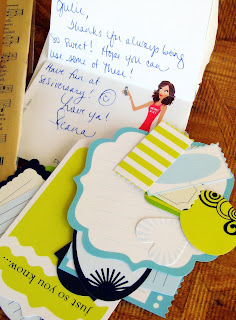 Julie,
Thank you always being
so sweet! Hope you can
use some of these!
Have fun at
Love ya!
just so you know...